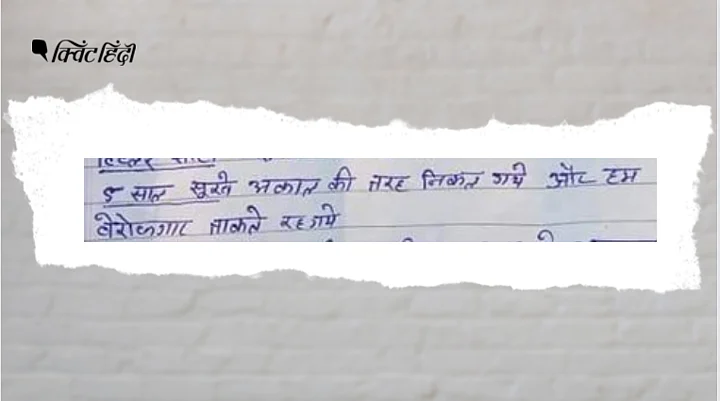 क्विंट हिंदी
5 साल सूखे अकाल की तरह निकल गये और हम
बेरोजगार ताकते रह गये